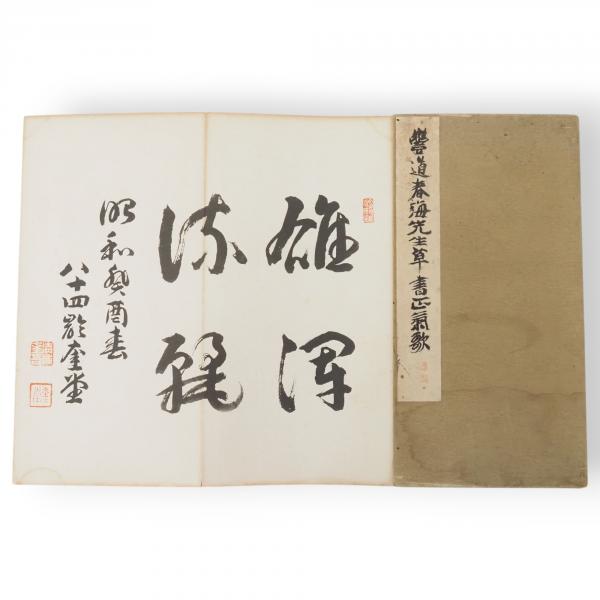 豐道春海先生草書正氣歌
雄渾
流麗
昭和癸酉春
八十四齡奎堂